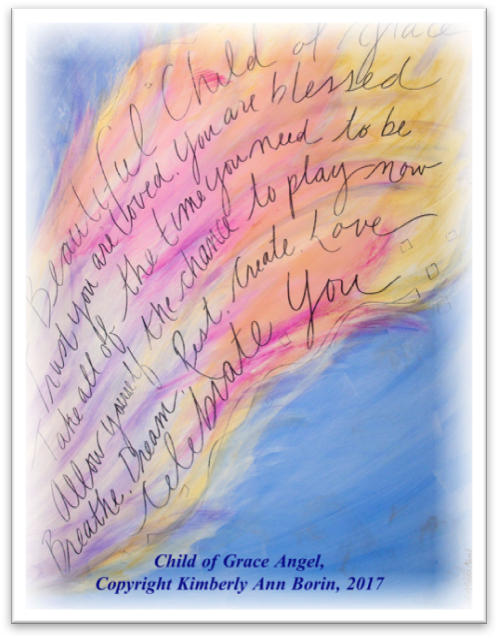 Beautiful "Child of Grace
Trust you are loved. You are blessed
Take all of the time you need to be
Allow yourself the chance to play now
Breathe. Dream. Rest. Create. Love
Celebrate You
Child of Grace Angel,
Copyright Kimberly Ann Borin, 2017